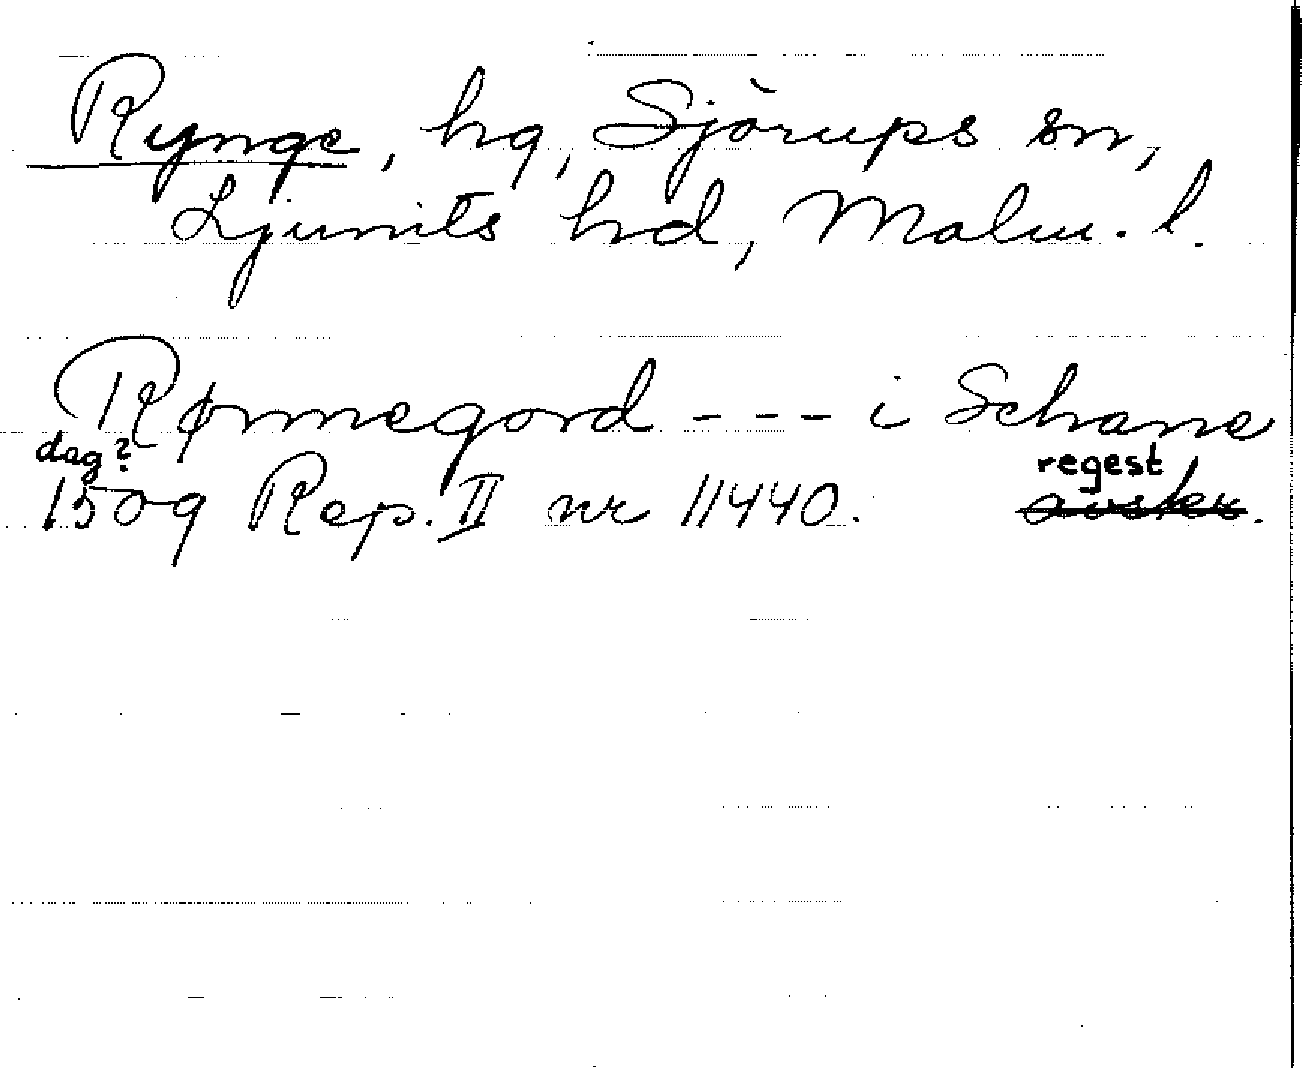 Rynge, hg, Sjörups sn,
Ljunits hd, Malm. l.
Rønnegord --- i Schane
dag? regest
1509 Rep. II nr 11440. avskr.